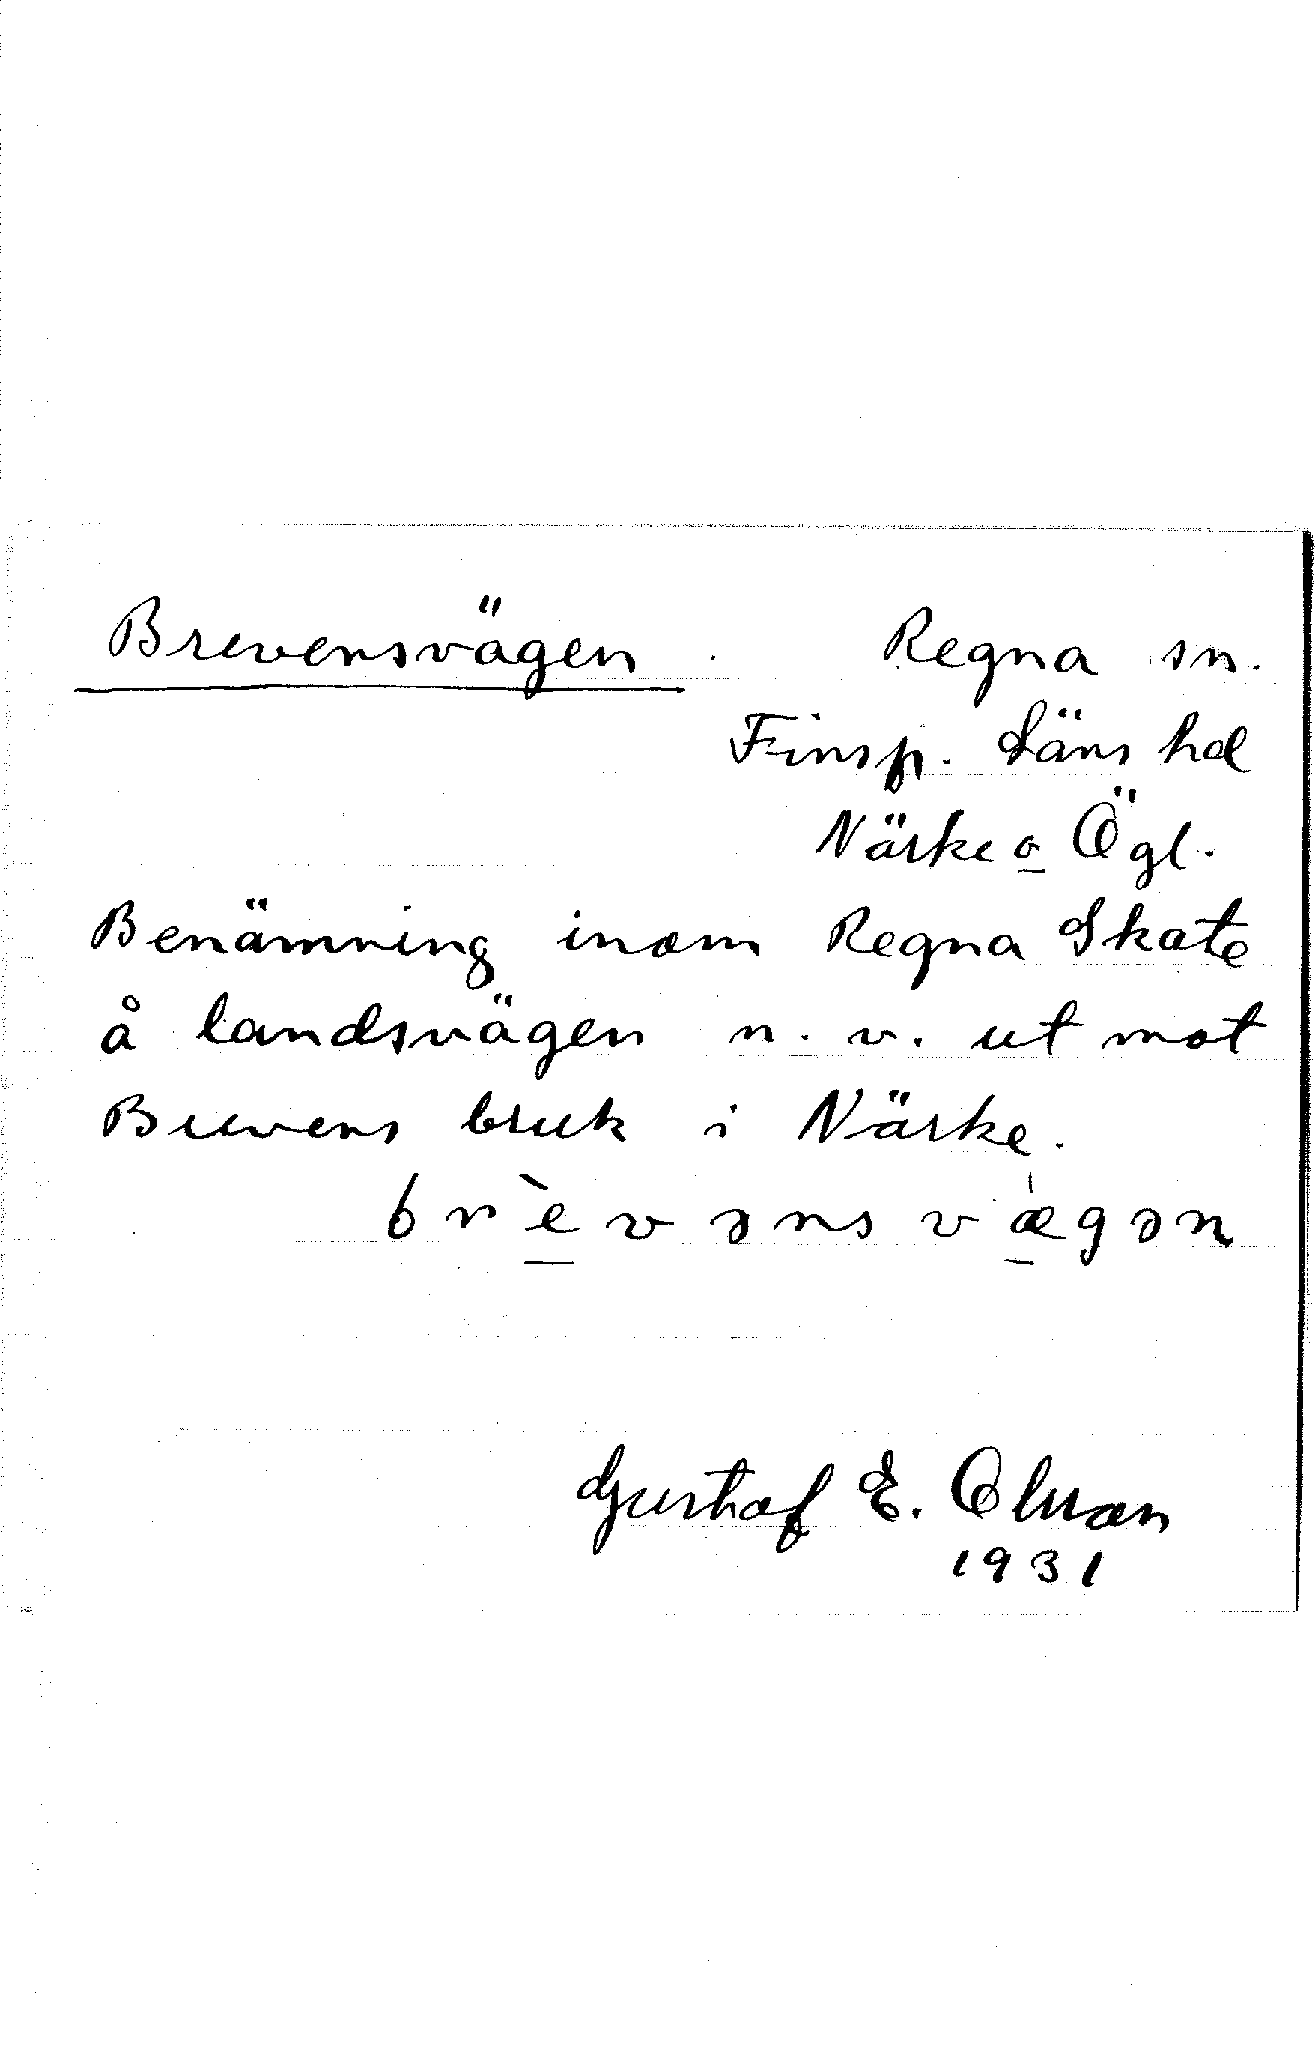 Brevensvägen. Regna sn.
Finsp. Läns hd
Närke o Ögl.
Benämning inom Regna Skate
å landsvägen n. v. ut mot
Brevens bruk i Närke.
brèvənsvægən
Gustaf E. Olsson
1931